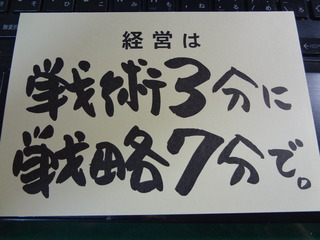 経営は
戦術3分に
戦略7分で。